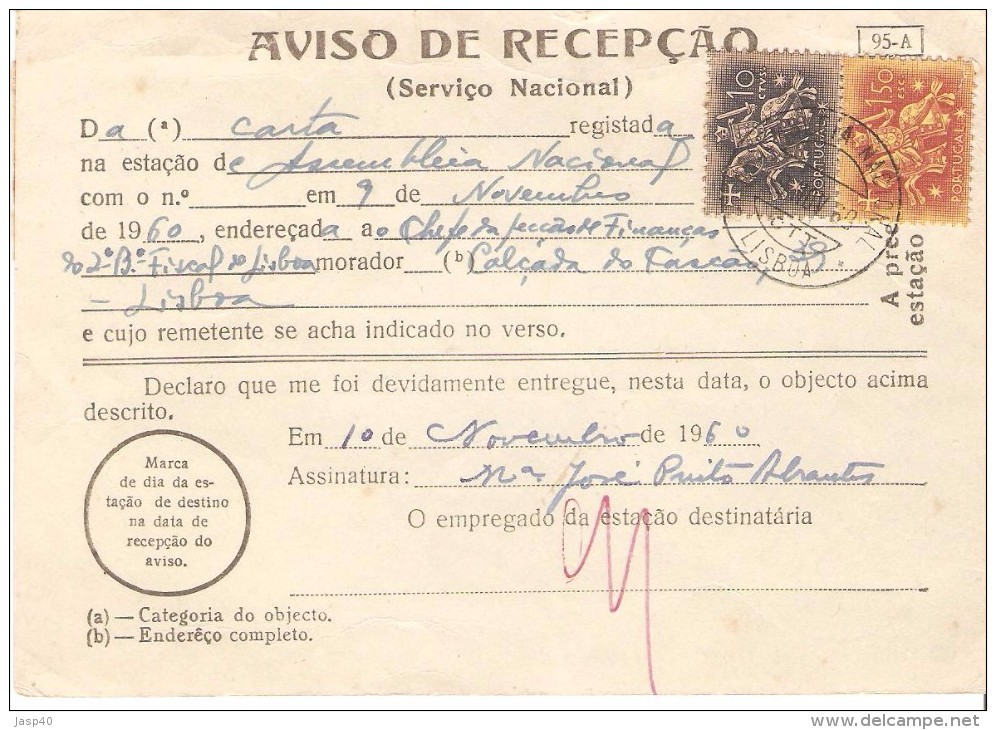 AVISO DE RECEPÇÃO
95-A
(Serviço Nacional)
Da (ª) carta registada
na estação de Assembleia Nacional
com o n.º em 9 de Novembro
de 1960, endereçada ao Chefe da secção de Finanças
do 2º B.º Fiscal de Lisboa morador (ᵇ) Calçada do Cascão, 39
- Lisboa
e cujo remetente se acha indicado no verso.
10 CTVS.
PORTUGAL
1$50 ESC.
PORTUGAL
NAC
CTT
LISBOA
A
estação
Declaro que me foi devidamente entregue, nesta data, o objecto acima
descrito.
Em 10 de Novembro de 1960
Assinatura: Mª José Pinto Abrantes
O empregado da estação destinatária
Marca
de dia da es-
tação de destino
na data de
recepção do
aviso.
(a) — Categoria do objecto.
(b) — Enderêço completo.
Jasp40
delcampe.net